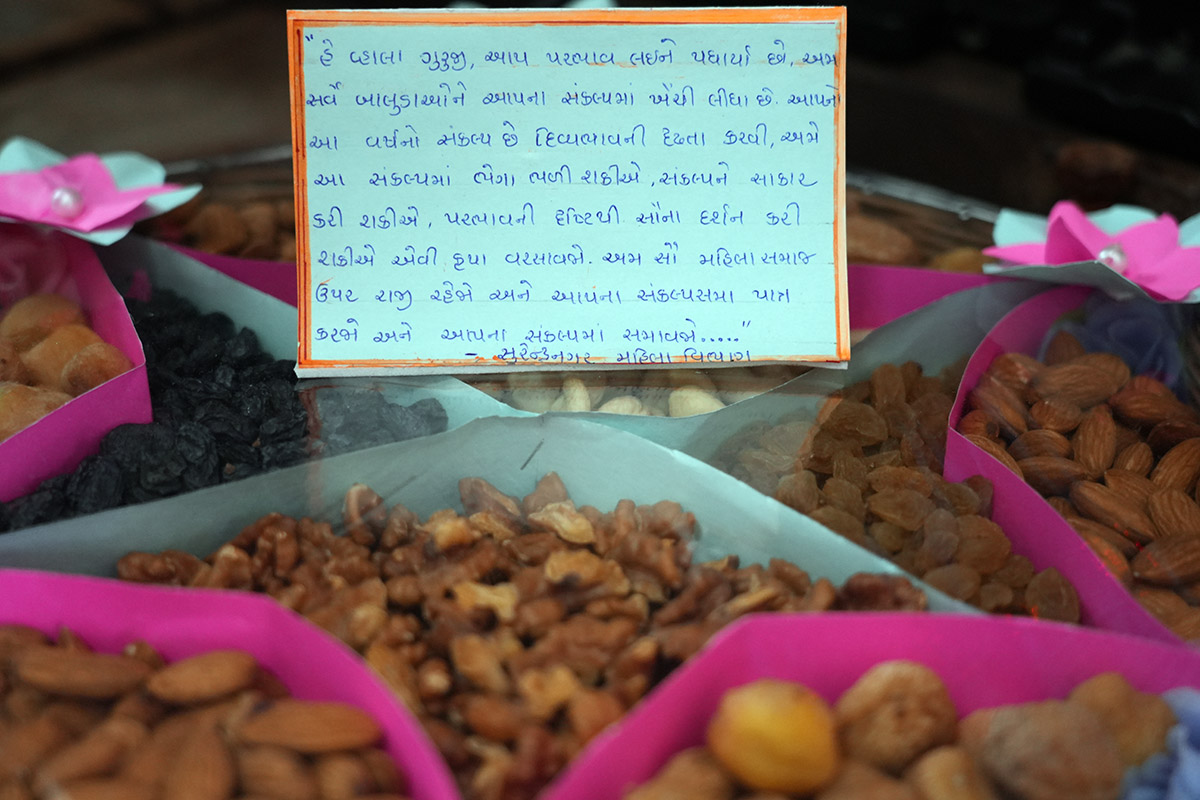 "હે વ્હાલા ગુરુજી, આપ પરભાવ લઇને પધાર્યા છો, અમ
સર્વે બાલુડાઓને આપના સંકલ્પમાં ખેંચી લીધા છે. આપનો
આ વર્ષનો સંકલ્પ છે દિવ્યભાવની દૃઢતા કરવી, અમે
આ સંકલ્પમાં ભેગા ભળી શકીએ, સંકલ્પને સાકાર
કરી શકીએ, પરભાવની દૃષ્ટિથી સૌના દર્શન કરી
શકીએ એવી કૃપા વરસાવજો. અમ સૌ મહિલા સમાજ
ઉપર રાજી રહેજો અને આપના સંકલ્પસમા પાત્ર
કરજો અને આપના સંકલ્પમાં સમાવજો....."
- સુરેન્દ્રનગર મહિલા વિભાગ